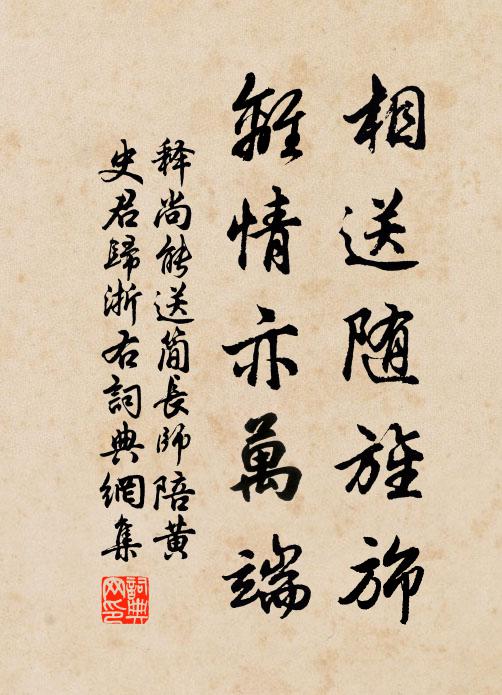 相送随旌旆
離情亦萬端
释尚能送简長師陪黄
史君歸浙右詞典網集
詞典网印